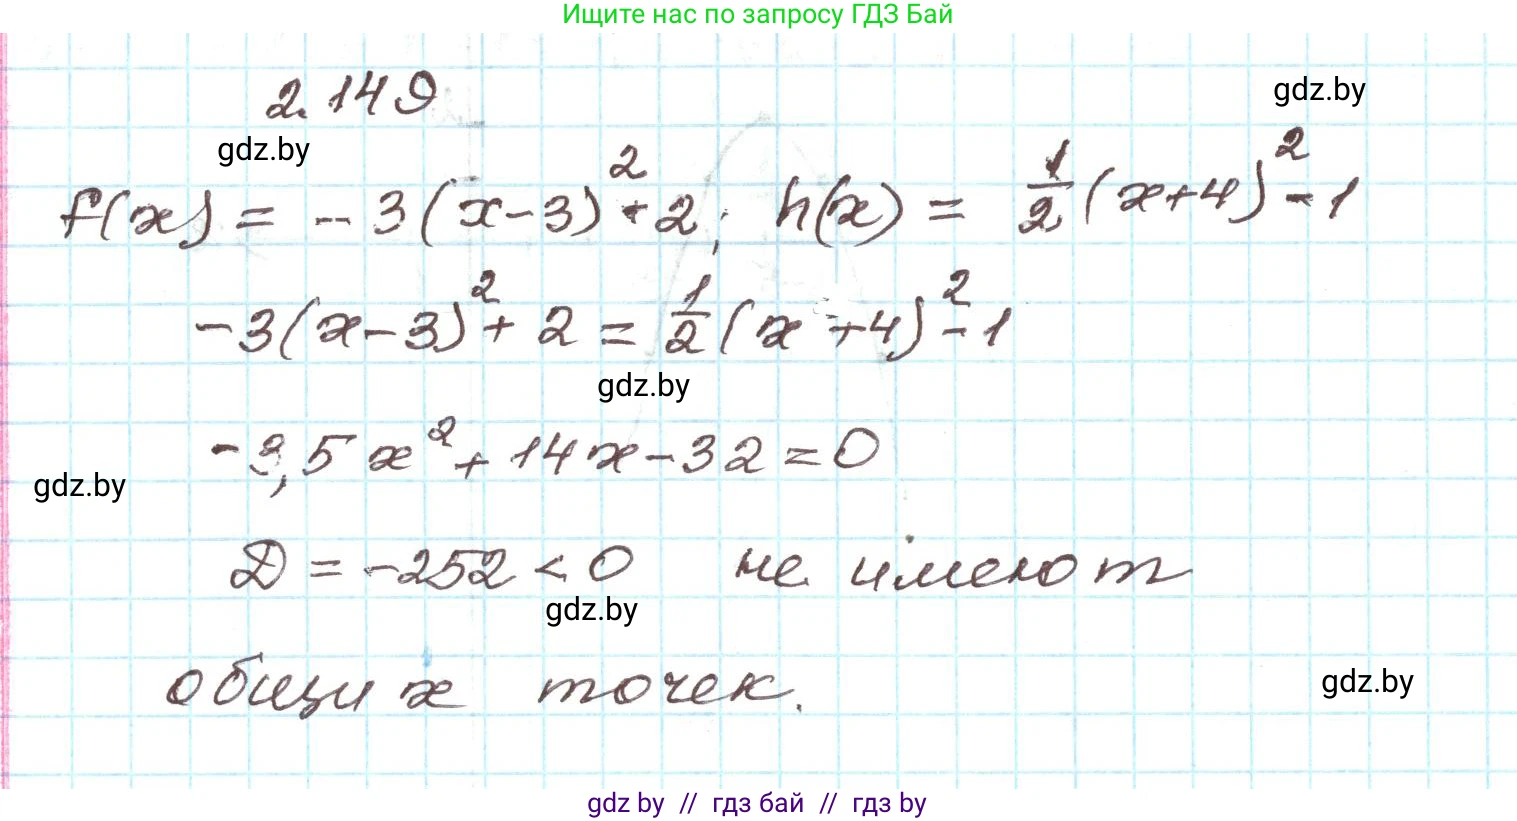 Ищите нас по запросу ГДЗ Бай
2.149
gdz.by
gdz.by
f(x) = -3(x-3)² + 2; h(x) = 1/2 (x+4)² - 1
-3(x-3)² + 2 = 1/2 (x+4)² - 1
gdz.by
-3,5x² + 14x - 32 = 0
gdz.by
D = -252 < 0 не имеют
gdz.by
общих точек.
gdz.by
gdz by // гдз бай // гдз by